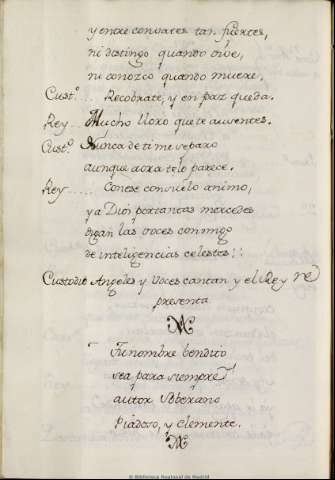 y entre combates tan fuertes,
ni distingo quando vive,
ni conozco quando muere.
Custº.... Recobrate, y en paz queda.
Rey... Mucho lloro que te ausentes.
Custº. Nunca de ti me separo
aunque aora te lo parece.
Rey..... Con ese consuelo animo,
ya Dios por tantas mercedes
digan las voces conmigo
de inteligencias celestes::
Custodio Angeles y Voces cantan y el Rey re
presenta
Tu nombre bendito
sea para siempre
autor Soberano
Piadoso, y clemente.
© Biblioteca Nacional de Madrid